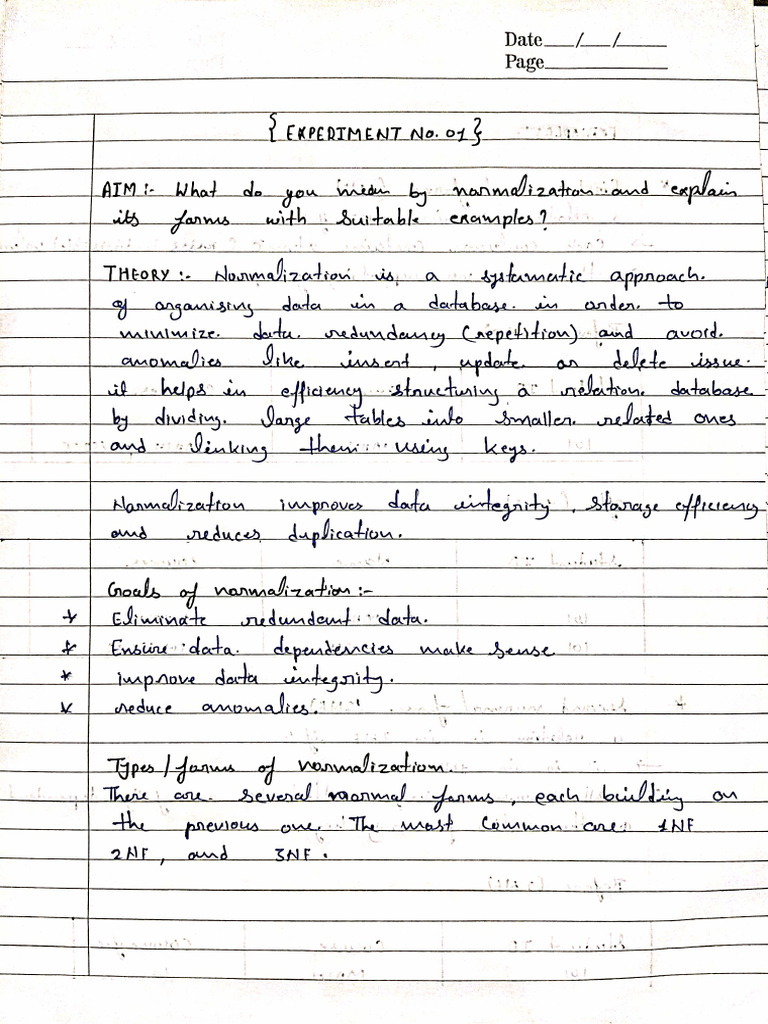 Date __/__/____
Page__________
{ EXPERIMENT No. 01 }
AIM :- What do you mean by normalization and explain
its forms with suitable examples?
THEORY :- Normalization is a systematic approach.
of organising data in a database. in order. to
minimize. data. redundancy (repetition) and avoid.
anomalies like insert, update or delete issue.
it helps in efficiency structuring a relation. database
by dividing. large tables into smaller. related ones
and linking them using keys.
Normalization improves data integrity, storage efficiency
and reduces duplication.
Goals of normalization :-
* Eliminate redundant data.
* Ensure data. dependencies make sense
* improve data integrity.
* reduce anomalies.
Types / forms of normalization.
There are. several normal forms, each building on
the previous one. The most common are: 1NF
2NF, and 3NF.